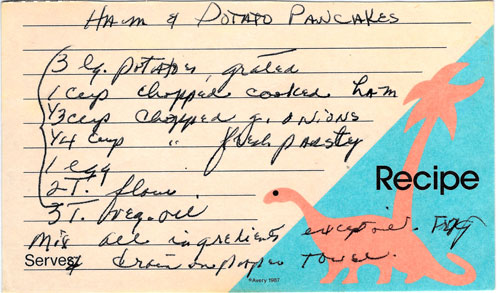 HAM & POTATO PANCAKES
3 lg. potatoes, grated
1 cup chopped cooked ham
1/3 cup chopped g. onions
1/4 cup " fresh parsley
1 egg
2 T. flour
3 T. veg. oil
Recipe
Mix all ingredients except oil. Fry
Serves & drain on paper towel.
©Avery 1987